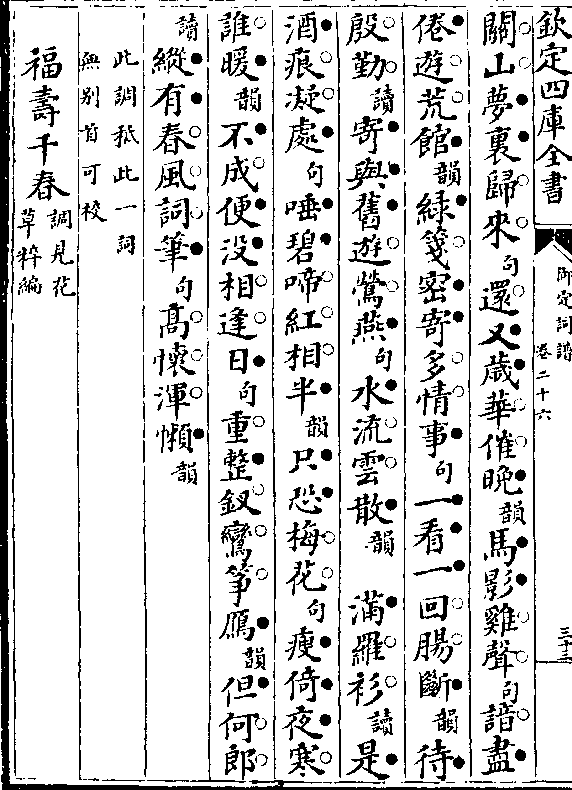 欽定四庫全書
御定詞譜
卷二十六
三十三
關山夢裏歸來句還又歲華催晚韻馬影雞聲句諳盡
倦遊荒館韻綠箋密寄多情事句一看一回腸斷韻待
殷勤讀寄與舊遊鶯燕句水流雲散韻 滿羅衫讀是
酒痕凝處句唾碧啼紅相半韻只恐梅花句瘦倚夜寒
誰暖韻不成便没相逢日句重整釵鸞箏鴈韻但何郎
讀縱有春風詞筆句髙懷渾懶韻
此調祇此一詞
無别首可校
福壽千春
調見花
草粹編